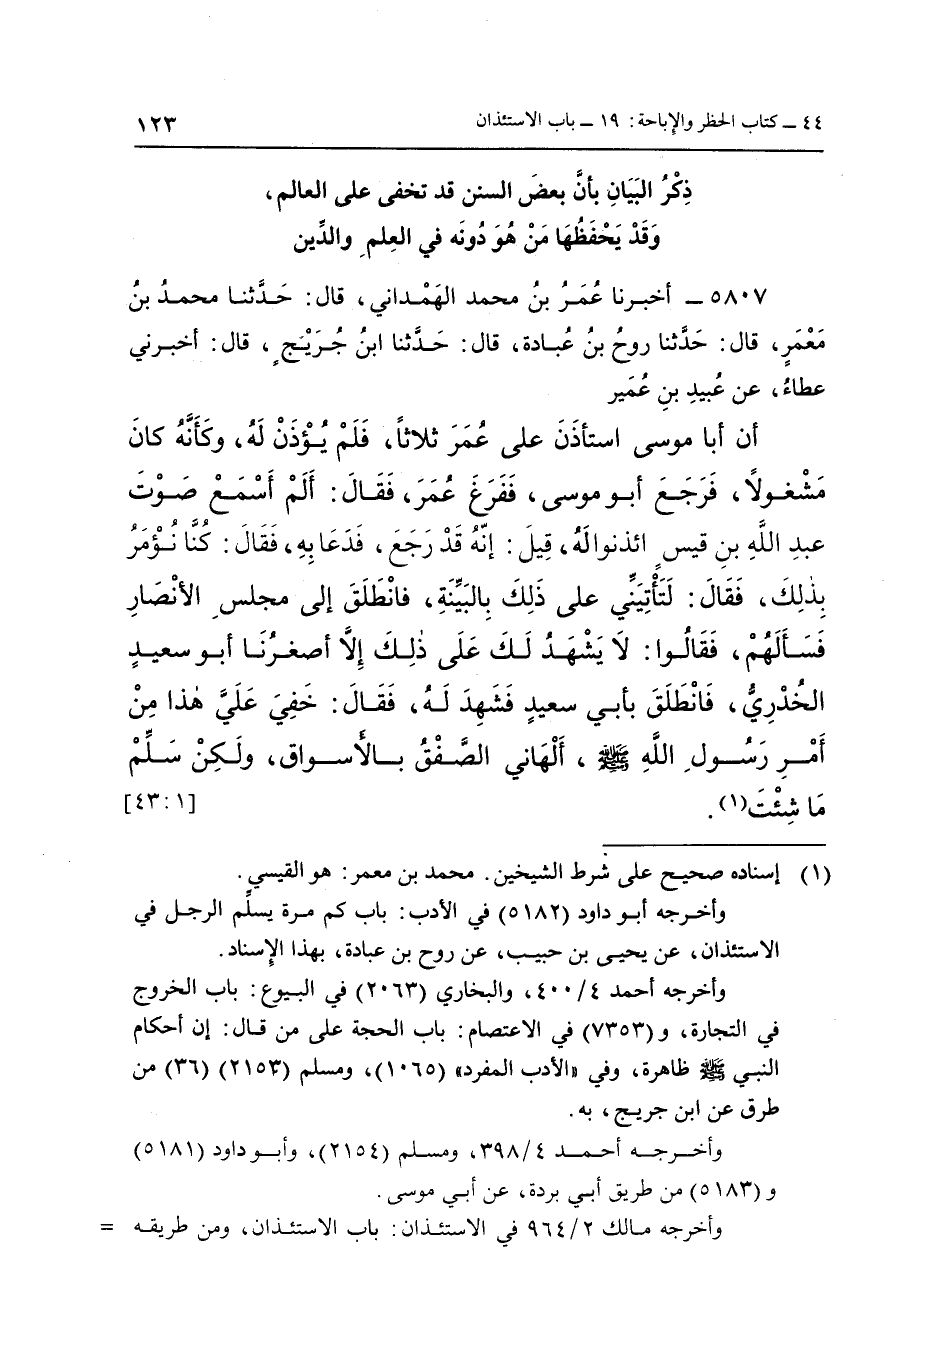 ٤٤ ــ كتاب الحظر والإباحة: ١٩ ــ باب الاستئذان ١٢٣
ذِكْرُ البَيَانِ بأنَّ بعضَ السنن قد تخفى على العالم،
وَقَدْ يَحْفَظُهَا مَنْ هُوَ دُونَه في العِلمِ والدِّين
٥٨٠٧ ــ أخبرنا عُمَرُ بنُ محمد الهَمْداني، قال: حَدَّثنا محمدُ بنُ
مَعْمَرٍ، قال: حَدَّثنا روحُ بنُ عُبادة، قال: حَدَّثنا ابنُ جُرَيْجٍ، قال: أخبرني
عطاءٌ، عن عُبيدِ بنِ عُمَير
أن أبا موسى استأذَنَ على عُمَرَ ثلاثاً، فَلَمْ يُؤْذَنْ لَهُ، وكَأَنَّهُ كانَ
مَشْغولاً، فَرَجَعَ أبو موسى، فَفَرَغَ عُمَرَ، فَقَالَ: أَلَمْ أَسْمَعْ صَوْتَ
عبدِ اللَّهِ بن قيسٍ ائذنوا لَهُ، قِيلَ: إنَّهُ قَدْ رَجَعَ، فَدَعَا بِهِ، فَقَالَ: كُنَّا نُؤْمَرُ
بِذٰلِكَ، فَقَالَ: لَتَأْتِيَنِّي على ذٰلِكَ بِالبَيِّنَةِ، فانْطَلَقَ إلى مجلسِ الأنْصَارِ
فَسَأَلَهُمْ، فَقَالُوا: لاَ يَشْهَدُ لَكَ عَلَى ذٰلِكَ إلاَّ أصغرُنَا أبو سعيدٍ
الخُدْرِيُّ، فَانْطَلَقَ بأبي سعيدٍ فَشَهِدَ لَهُ، فَقَالَ: خَفِيَ عَلَيَّ هٰذا مِنْ
أَمْرِ رَسُولِ اللَّهِ ﷺ، أَلْهَاني الصَّفْقُ بالأَسواق، ولَكِنْ سَلِّمْ
مَا شِئْتَ(١). [٤٣:١]
(١) إسناده صحيح على شرط الشيخين. محمد بن معمر: هو القيسي.
وأخرجه أبو داود (٥١٨٢) في الأدب: باب كم مرة يسلِّم الرجل في
الاستئذان، عن يحيى بن حبيب، عن روح بن عبادة، بهذا الإسناد.
وأخرجه أحمد ٤٠٠/٤، والبخاري (٢٠٦٣) في البيوع: باب الخروج
في التجارة، و(٧٣٥٣) في الاعتصام: باب الحجة على من قال: إن أحكام
النبي ﷺ ظاهرة، وفي «الأدب المفرد» (١٠٦٥)، ومسلم (٢١٥٣) (٣٦) من
طرق عن ابن جريج، به.
وأخرجه أحمد ٣٩٨/٤، ومسلم (٢١٥٤)، وأبو داود (٥١٨١)
و (٥١٨٣) من طريق أبي بردة، عن أبي موسى.
وأخرجه مالك ٩٦٤/٢ في الاستئذان: باب الاستئذان، ومن طريقه =